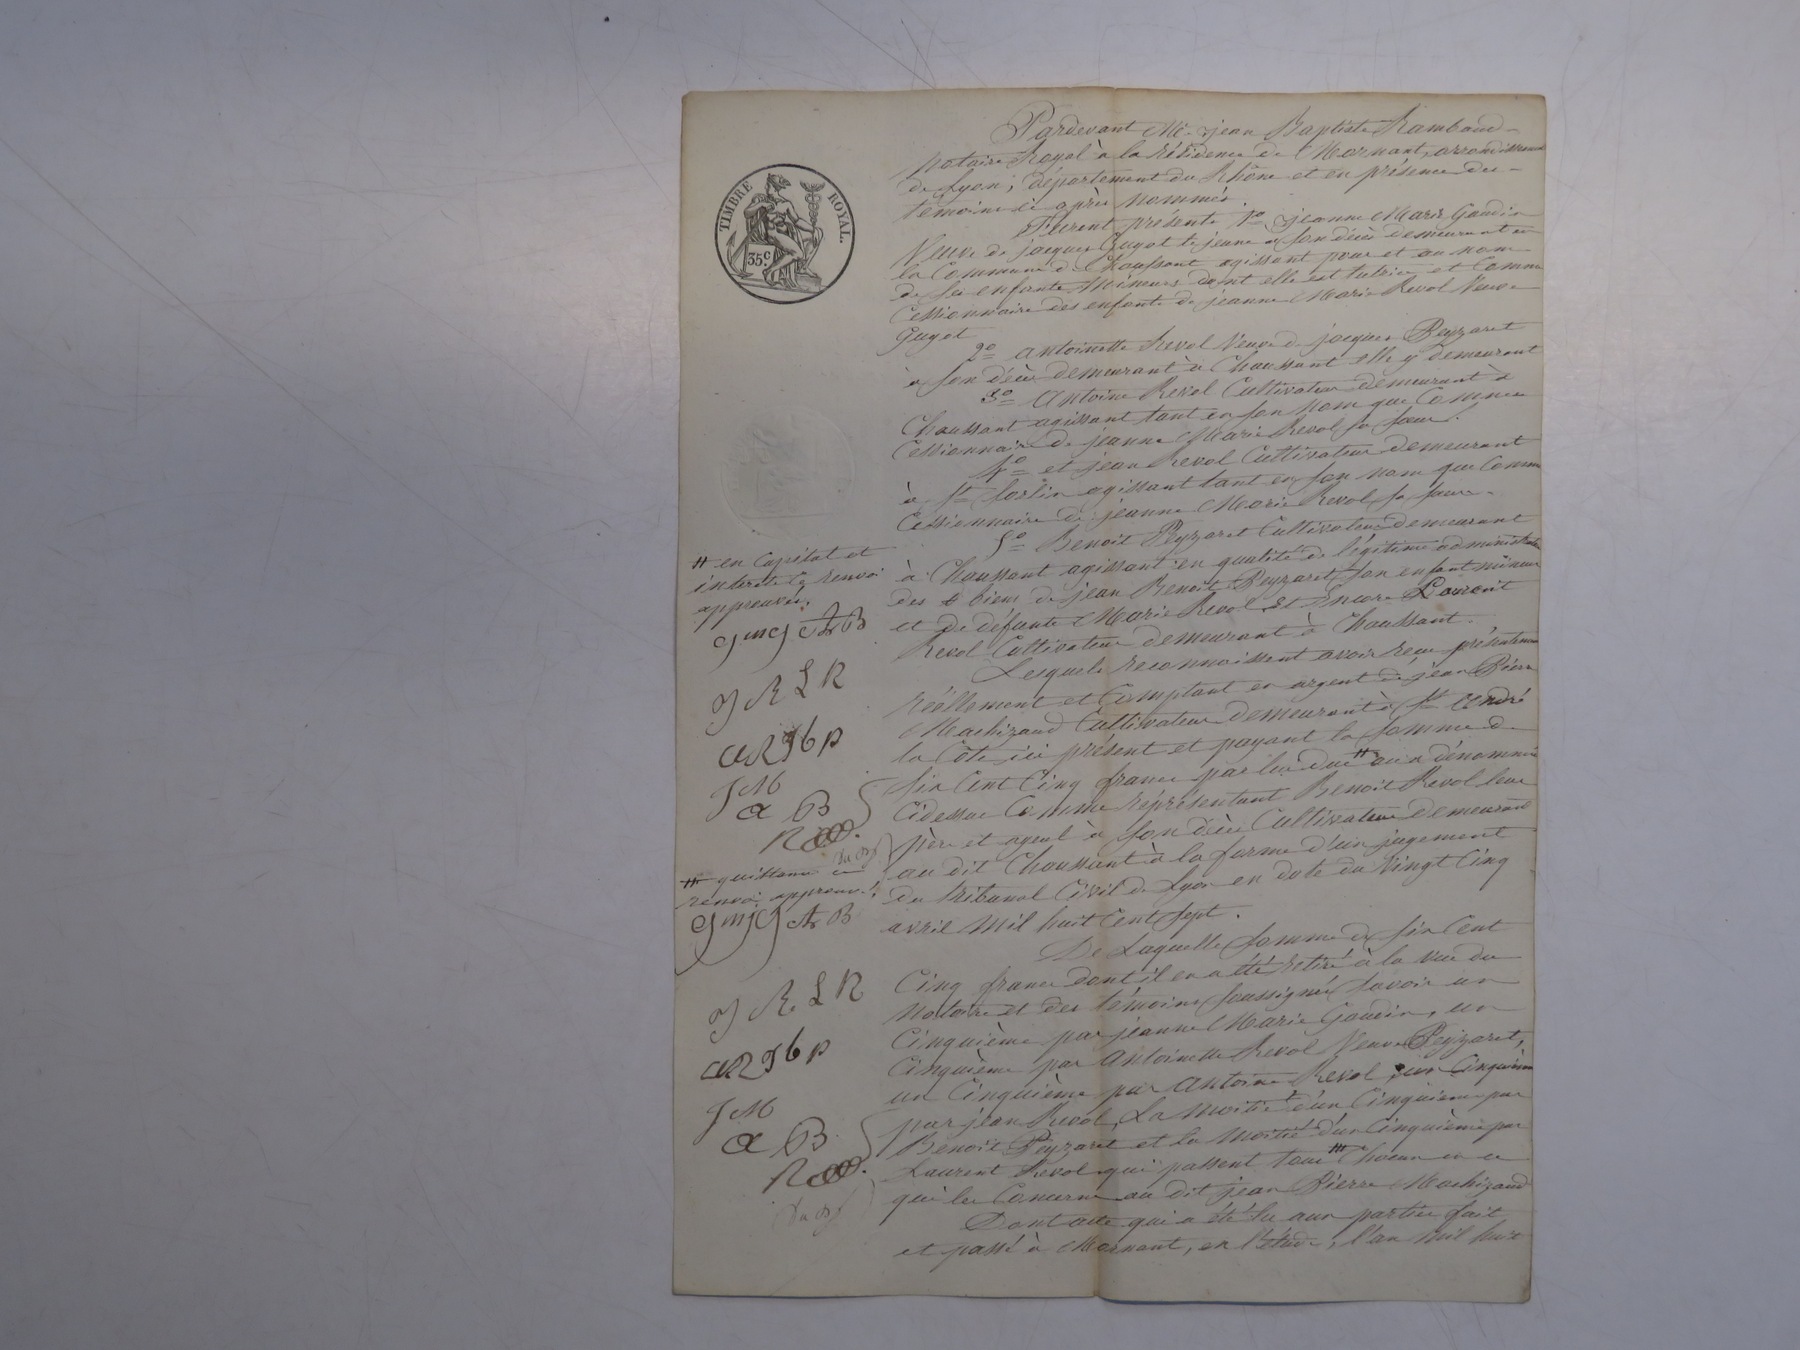 TIMBRE ROYAL.
35 c.
Pardevant Me. jean Baptiste Rambaud
notaire Royal à la résidence de Mornant, arrondissement
de Lyon, département du Rhône et en présence des
témoins ci après nommés.
Furent présents 1o jeanne Marie Goudin
Veuve de jacques Guyot le jeune à son décès demeurant en
la Commune de Chaussant agissant pour et au nom
de ses enfants Mineurs dont elle est tutrice et Comme
Cessionnaire des enfants de jeanne Marie Revol Veuve
Guyot
2o antoinette Revol Veuve de jacques Peyzaret
à son décès demeurant à Chaussant elle y demeurant
3o antoine Revol Cultivateur demeurant à
Chaussant agissant tant en son nom que Comme
Cessionnaire de jeanne Marie Revol sa sœur.
4o et jean Revol Cultivateur demeurant
à St Sorlin agissant tant en son nom que Comme
Cessionnaire de jeanne Marie Revol sa sœur.
5o Benoit Peyzaret Cultivateur demeurant
à Chaussant agissant en qualité de légitime administrateur
des biens de jean Benoit Peyzaret son enfant mineur
et de défunte Marie Revol et encore Laurent
Revol Cultivateur demeurant à Chaussant.
Lesquels reconnoissent avoir reçu présentement
réellement et Comptant en argent de jean Pierre
Machizaud Cultivateur demeurant à St André
la Côte ici présent et payant la somme de
six Cent Cinq francs par lui due # aux dénommés
Cidessus Comme représentant Benoit Revol leur
père et ayeul à son décès Cultivateur demeurant
au dit Chaussant à la forme d'un jugement
du tribunal Civil de Lyon en date du Vingt Cinq
avril Mil huit Cent sept.
De Laquelle somme de six Cent
Cinq francs dont il en a été retiré à la vue du
Notaire et des témoins soussignés savoir un
Cinquième par jeanne Marie Goudin, un
Cinquième par antoinette Revol Veuve Peyzaret,
un Cinquième par antoine Revol, un Cinquième
par jean Revol, La moitié d'un Cinquième par
Benoit Peyzaret et la moitié d'un Cinquième par
Laurent Revol qui passent tous # Chacun en ce
qui les Concerne au dit jean Pierre Machizaud
Dont acte qui a été lu aux parties fait
et passé à Mornant, en l'étude, l'an Mil huit
# en Capital et
interets Ce renvoi
approuvé.
J R L R
JM
a B
# quittance ce
renvoi approuvé
J R L R
JM
a B